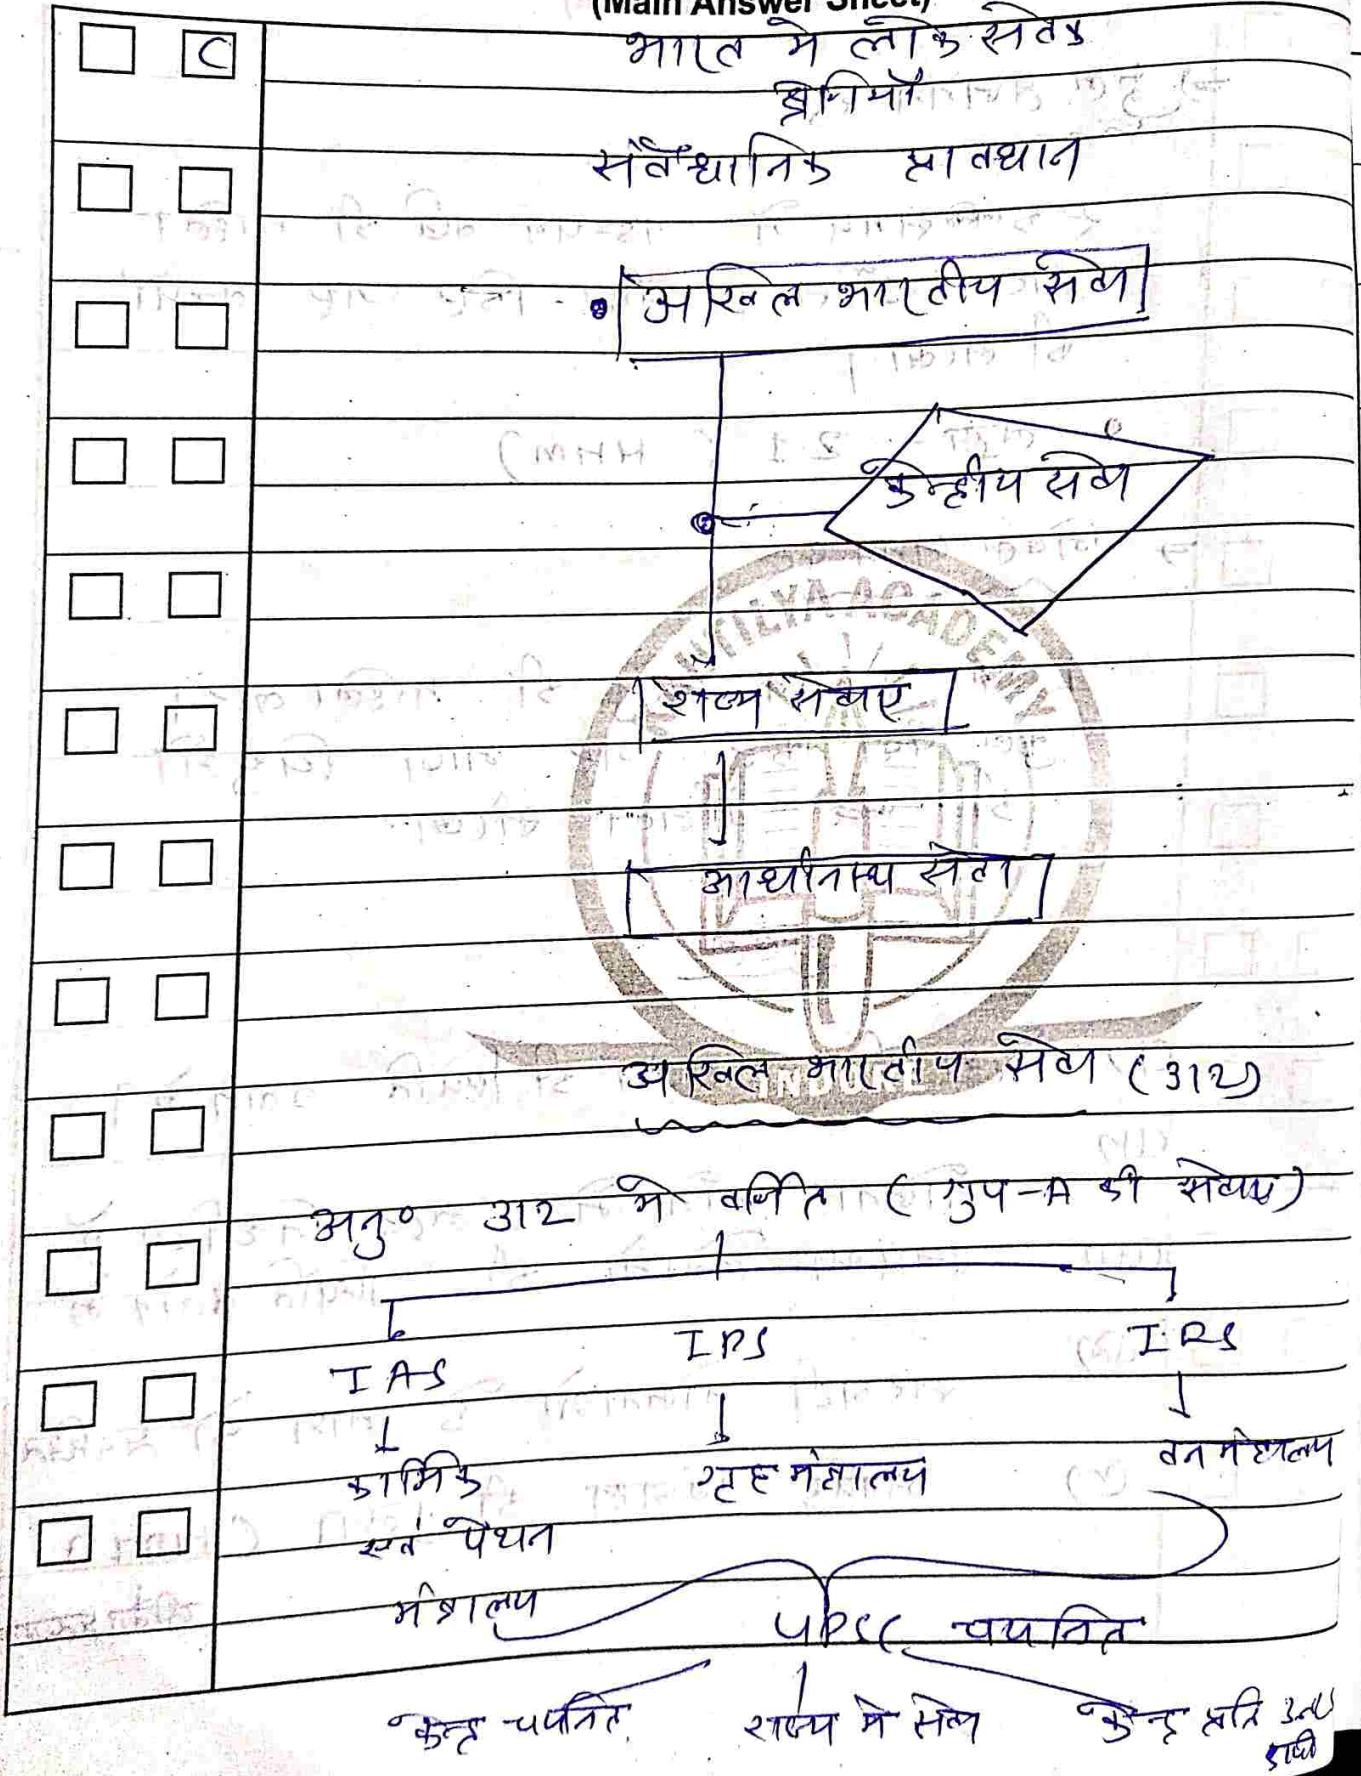 (Main Answer Sheet)
C
भारत मे लोक सेवक
श्रेणियाँ
संवैधानिक प्रावधान
अखिल भारतीय सेवा
केन्द्रीय सेवा
राज्य सेवाए
अखिल भारतीय सेवा (312)
अनु० 312 मे वर्णित (ग्रुप-A की सेवाए)
IAS IPS
कार्मिक गृह मंत्रालय वन मंत्रालय
एवं पेंशन
मंत्रालय
UPSC चयनित
केन्द्र चयनित राज्य मे सेवा केन्द्र प्रति